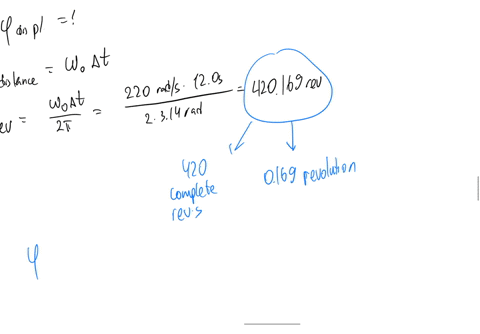 φ displ = ?
distance = ω₀ Δt
rev = ω₀Δt / 2π = 220 rad/s · 12.0s / 2 · 3.14 rad = 420.169 rev
420 complete rev.s
0.169 revolution
φ